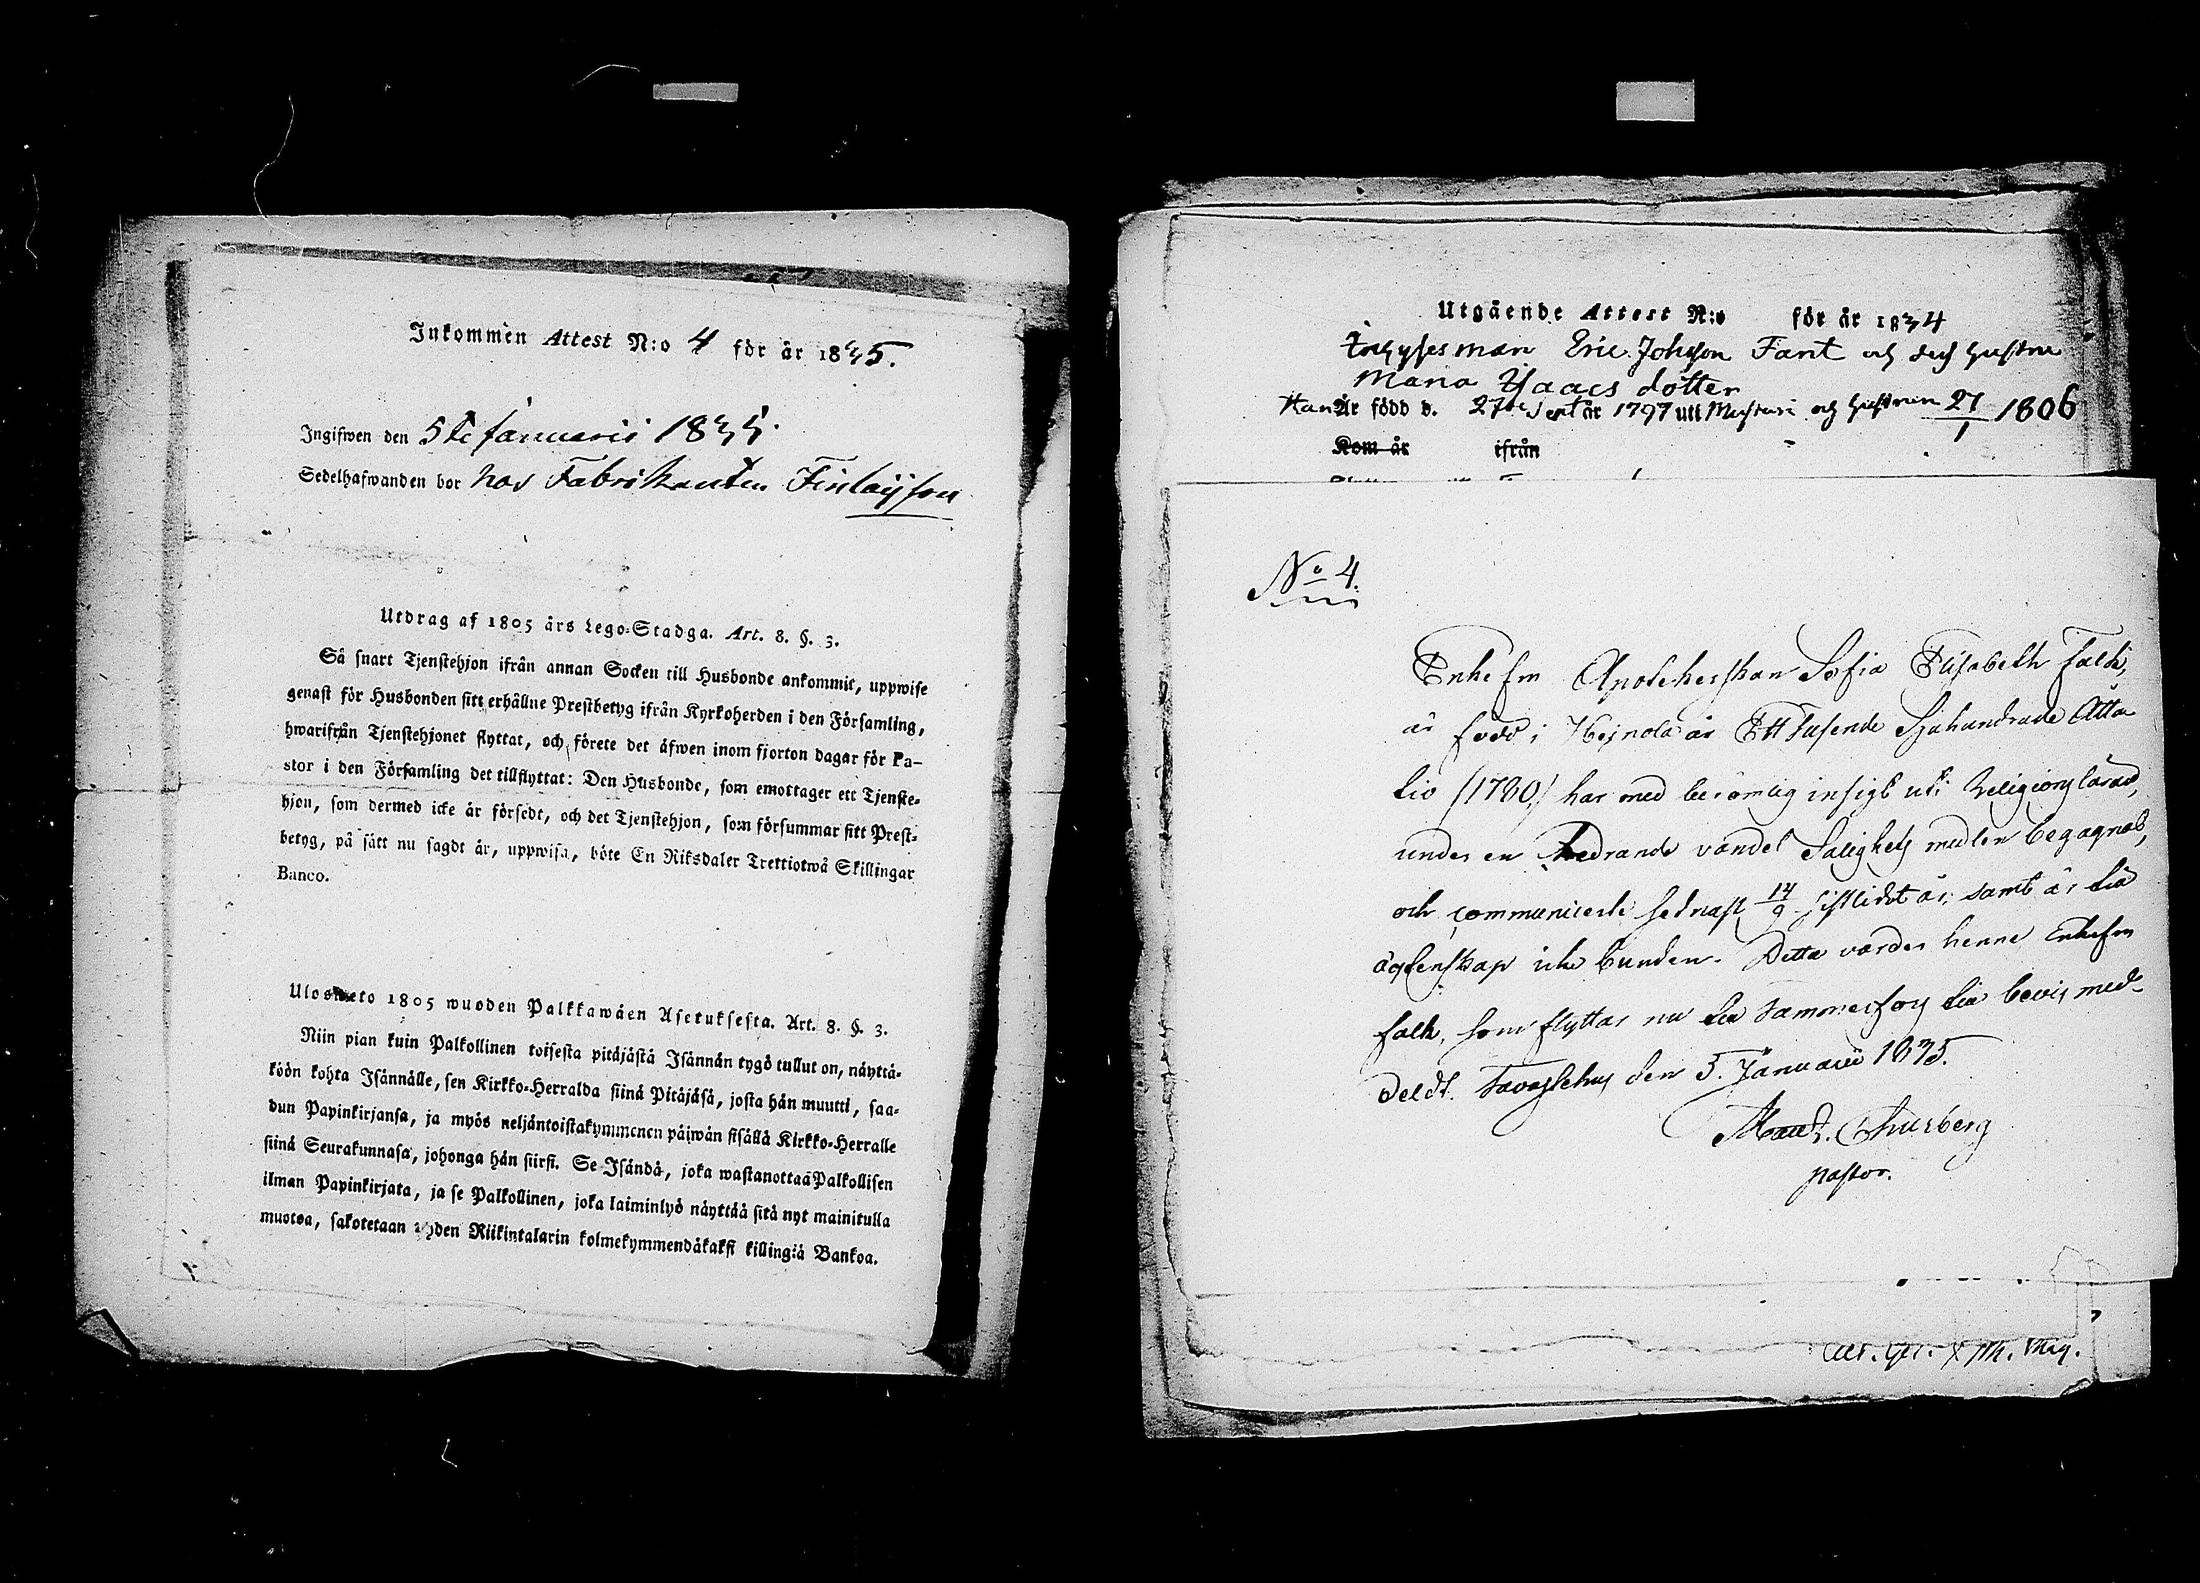 Inkommen Attest N:o 4 för år 1835.
Ingifwen den 5te Januarii 1835.
Sedelhafwanden bor hos Fabrikanten Finlayson
Utdrag af 1805 års Lego-Stadga. Art. 8. §. 3.
Så snart Tjenstehjon ifrån annan Socken till Husbonde ankommit, uppwise
genast för Husbonden sitt erhållne Prestbetyg ifrån Kyrkoherden i den Församling,
hwarifrån Tjenstehjonet flyttat, och förete det äfwen inom fjorton dagar för Pa-
stor i den Församling det tillflyttat: Den Husbonde, som emottager ett Tjenste-
hjon, som dermed icke är försedt, och det Tjenstehjon, som försummar sitt Prest-
betyg, på sätt nu sagdt är, uppwisa, böte En Riksdaler Trettiotwå Skillingar
Banco.
Ulosweto 1805 wuoden Palkkawäen Asetuksesta. Art. 8. §. 3.
Niin pian kuin Palkollinen toisesta pitäjästä Isännän tygö tullut on, näyttä-
köön kohta Isännälle, sen Kirkko-Herralda siinä Pitäjäsä, josta hän muutti, saa-
dun Papinkirjansa, ja myös neljäntoistakymmenen päiwän sisällä Kirkko-Herralle
siinä Seurakunnasa, johonga hän siirsi. Se Isändä, joka wastanottaa Palkollisen
ilman Papinkirjata, ja se Palkollinen, joka laiminlyö näyttää sitä nyt mainitulla
muotoa, sakotetaan yhden Riikintalarin kolmekymmendäkaksi killingiä Bankoa.
Utgående Attest N:o för år 1834
Inhysesman Eric Johsson Fant och dess hustru
Maria Isaacs dotter
Han Är född d. 27de Sept år 1797 uti Messuri och hustrun 27/1 1806
Kom år ifrån
No 4.
Enkefru Apotekerskan Sofia Elisabeth Falk,
är född i Hejnola år Ett tusende Sjuhundrade Åtta
tio (1780) har med berömlig insigt uti Religions läran,
under en hedrande vandel Salighets medlen begagnat,
och communicerte sednast 14/9 sistlidet år, samt är till
ägtenskap icke bunden. Detta varder henne Enkefru
Falk, som flyttar nu till Tammerfors till bevis med-
deldt. Tavastehus den 5. Januarii 1835.
Thurberg
pastor.